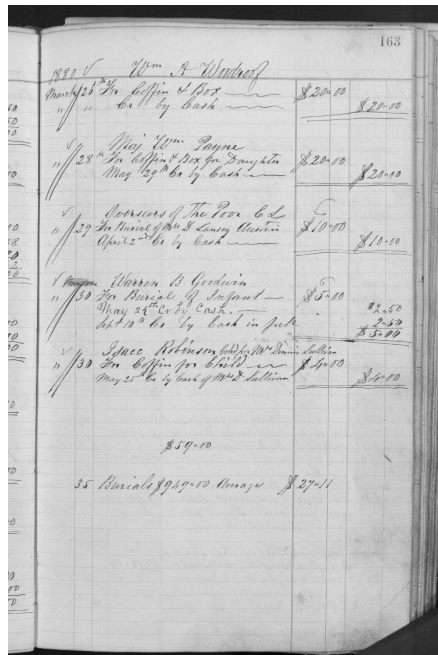 163
1880 Wm A Woodroof
March 26th For Coffin & Box $20.00
" " Cr by Cash $20.00
Maj Wm Payne
" 28th For Coffin & Box for Daughter $20.00
May 29th Cr by Cash $20.00
Overseers of The Poor C L
" 29 For Burial of Mrs D Lansey Austin $10.00
April 2nd Cr by Cash $10.00
Warren B Goodwin
" 30 For Burial of Infant $5.00
May 24th Cr by Cash $2.50
Sept 10th Cr by Cash in full 2.50
$5.00
Isacc Robinson Cold for Mrs Dennis Sullivan
" 30 For Coffin for Child $4.00
May 25th Cr by Cash of Mrs D Sullivan $4.00
$59.00
35 Burials $949.00 Average $27.11